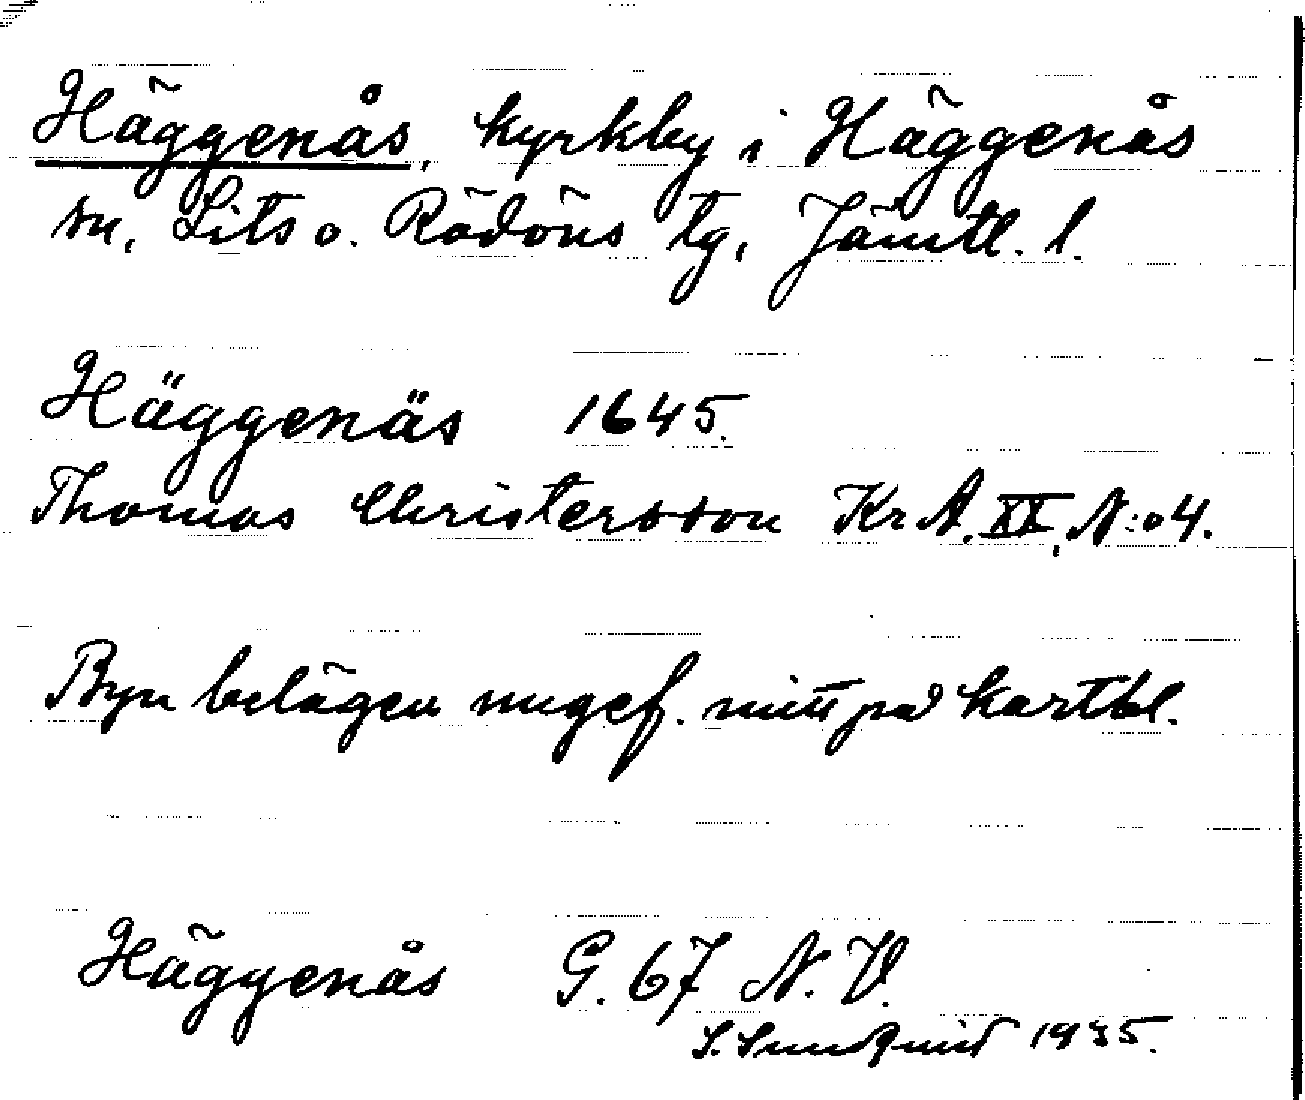 Häggenås, kyrkby i Häggenås
sn, Lits o. Rödöns tg, Jämtl. l.
Häggenäs 1645.
Thomas Christersson KrA. XX, N:o 4.
Byn belägen ungef. mitt på kartbl.
Häggenås G. 67 N. V.
S. Sundquist 1935.